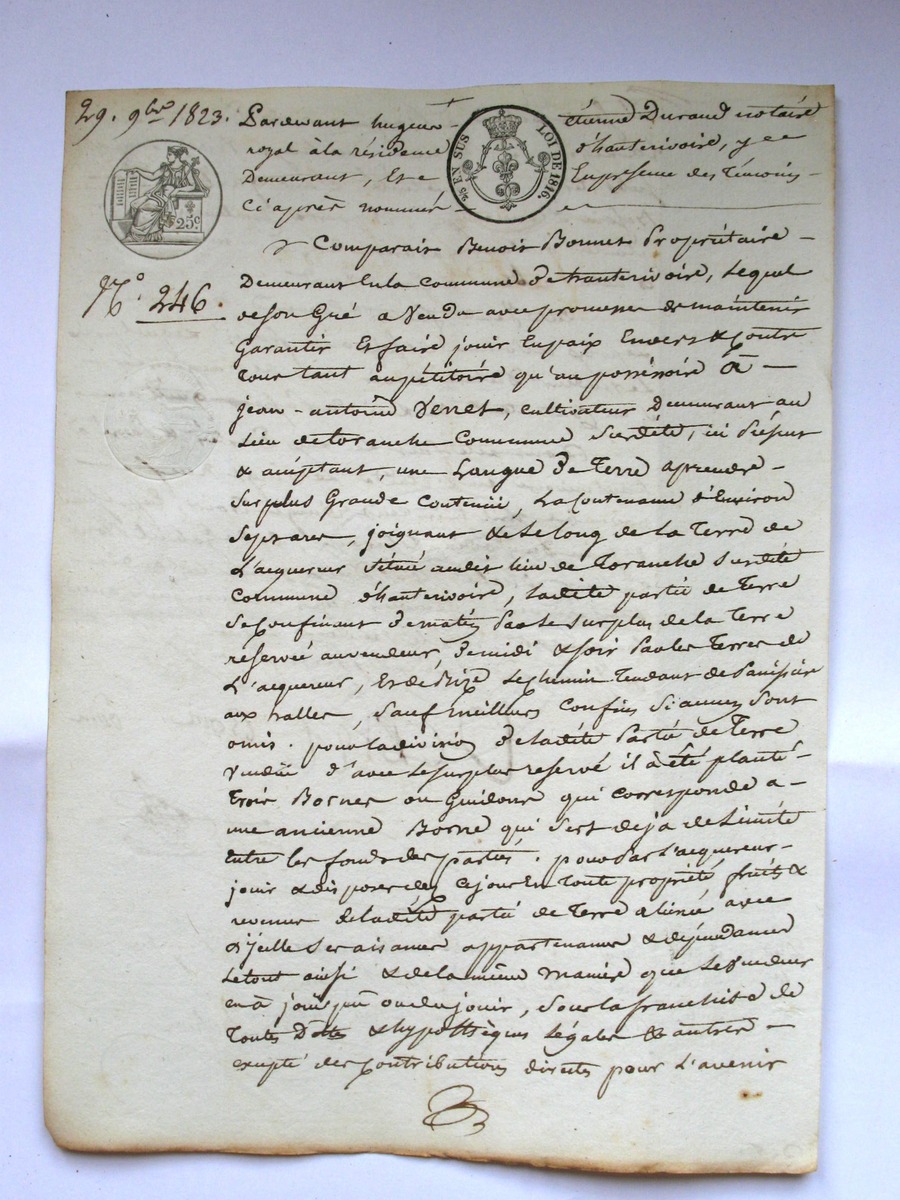 29. 9bre 1823.
Pardevant hugeus étienne Durand notaire
royal à la résidence d'hauterivoire, y ee
Demeurant, Et e En presense des Témoins
Ci après nommés
25 EN SUS LOI DE 1816.
25c
No. 246.
Comparait Benoit Bonnet Propriétaire
Demeurant En la Commune d'hauterivoire, Lequel
de son Gré a Vendu avec promesse de maintenir
Garantir Et faire jouir En paix Envers & Contre
tous tant au pétitoire qu'au possessoire à
jean-antoine Venet, cultivateur Demeurant au
Lieu de toranche Commune Susdite, ici présent
& acceptant, une Langue de Terre a prendre
Sur plus Grande Contenue, La Contenance d'Environ
Sept ares, joignant & Le Long de la Terre de
L'acquereur Située audit lieu de Toranche Susdite
Commune d'hauterivoire, Ladite partie de Terre
Se Confinant De matin Par Le surplus de la Terre
réservée au vendeur, De midi & soir Par les Terres de
L'acquereur, Et de Bize Le Chemin Tendant de Panissière
aux halles, Sauf meilleurs Confins Si aucuns Sont
omis. pour la division De ladite Partie de Terre
Vendue d'avec Le surplus reservé il à été planté
Trois Bornes ou Guidons qui corresponde a
une ancienne Borne qui Sert deja de Limite
Entre les fonds des parties. pour Par L'acquereur
jouir & disposer dez Ce jour En Toute propriété fruits &
revenus de ladite partie de Terre alienée avec
d'jcelle Ses aisances appartenances & dépendances
Le tout ainsi & de la même manière que Le Vendeur
en à joui pû ou du jouir, Sous la franchise de
Toutes Dettes & hypothèques Légales & autres
excepté des Contributions directes pour L'avenir